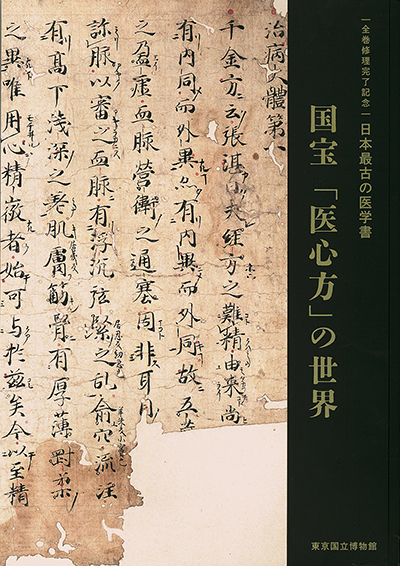 ｜全巻修理完了記念｜日本最古の医学書
国宝「医心方」の世界
東京国立博物館
治病大體第一
千金方云張湛曰夫經方之難精由来尚
有内同而外異亦有内異而外同故五
之盈虚血脉營衛之通塞固非耳目
診脉以審之血脉有浮沉弦緊之乱俞穴流注
有髙下浅深之差肌膚筋骨有厚薄剛柔
之異唯用心精微者始可与於兹矣今以至精